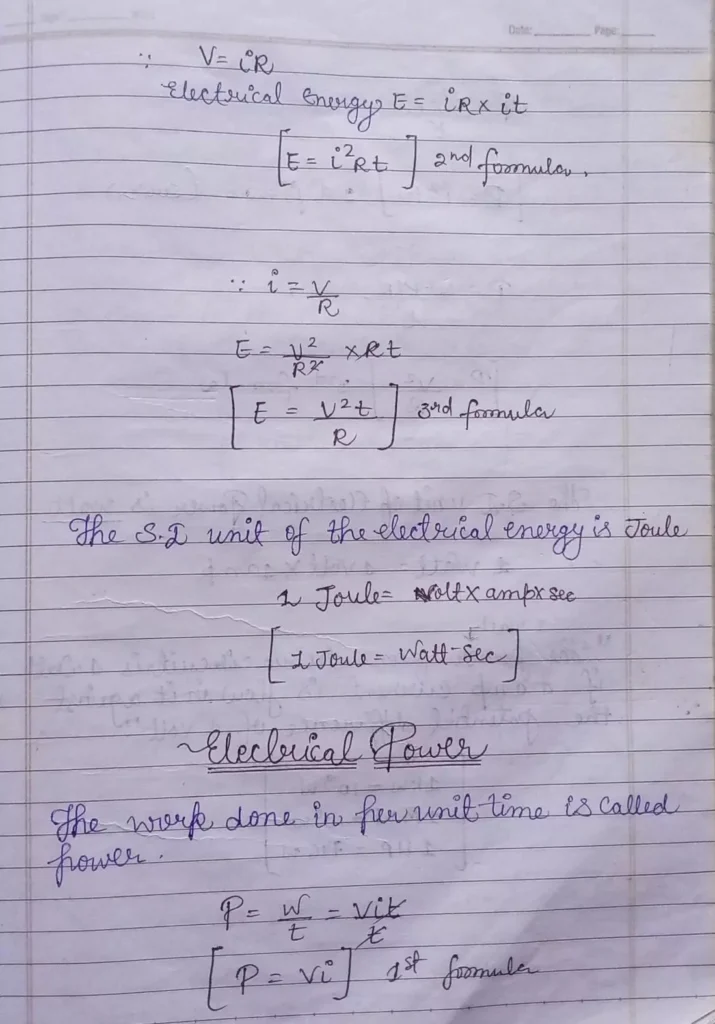 Date: Page:
∵ V = iR
Electrical Energy E = iR x it
[E = i²Rt] 2nd formula.
∵ i = V/R
E = V²/R² x Rt
[E = V²t/R] 3rd formula
The S.I unit of the electrical energy is Joule
1 Joule = Volt x amp x sec
[1 Joule = Watt-Sec]
Electrical Power
The work done in per unit time is called
power.
P = W/t = Vit/t
[P = Vi] 1st formula